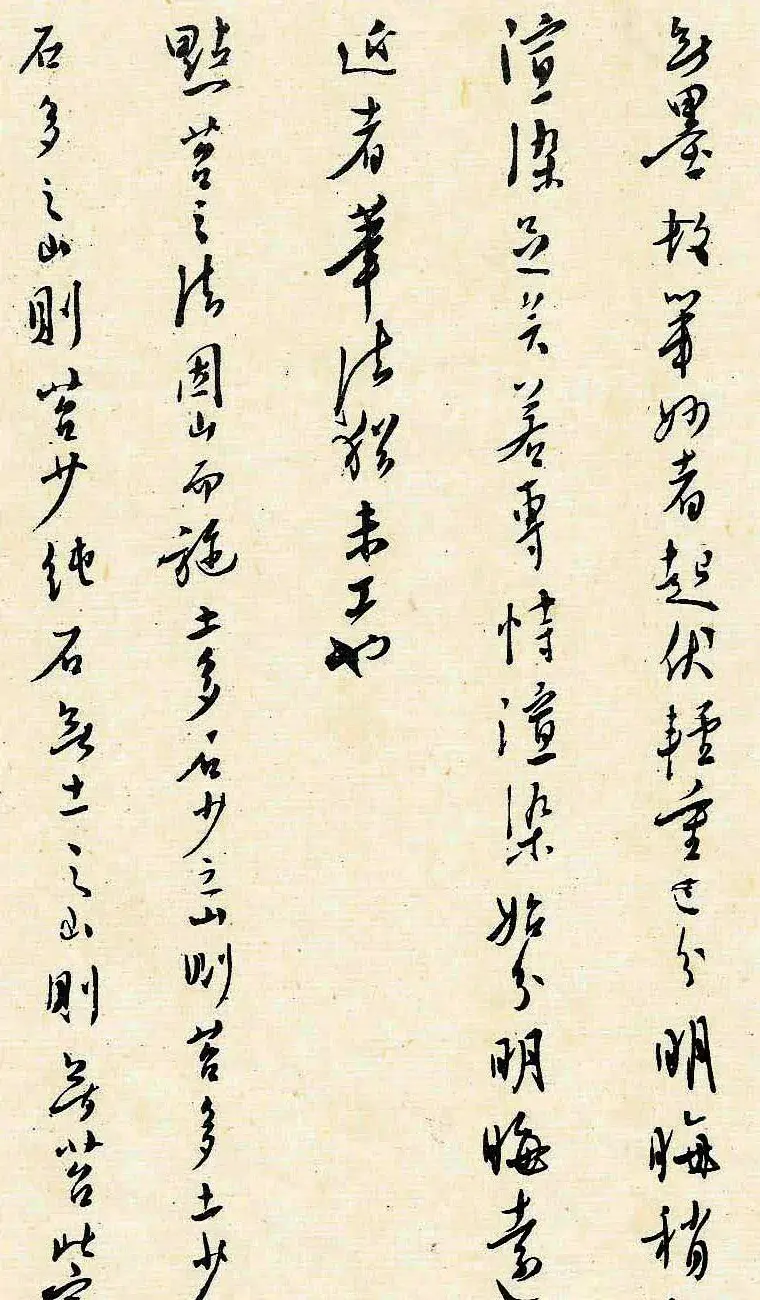 無墨故筆妙者起伏輕重已分明晦稍
渲染足矣若專恃渲染始分明晦遠
近者筆法猶未工也
點苔之法因山而施土多石少之山則苔多土少
石多之山則苔少純石無土之山則無苔此